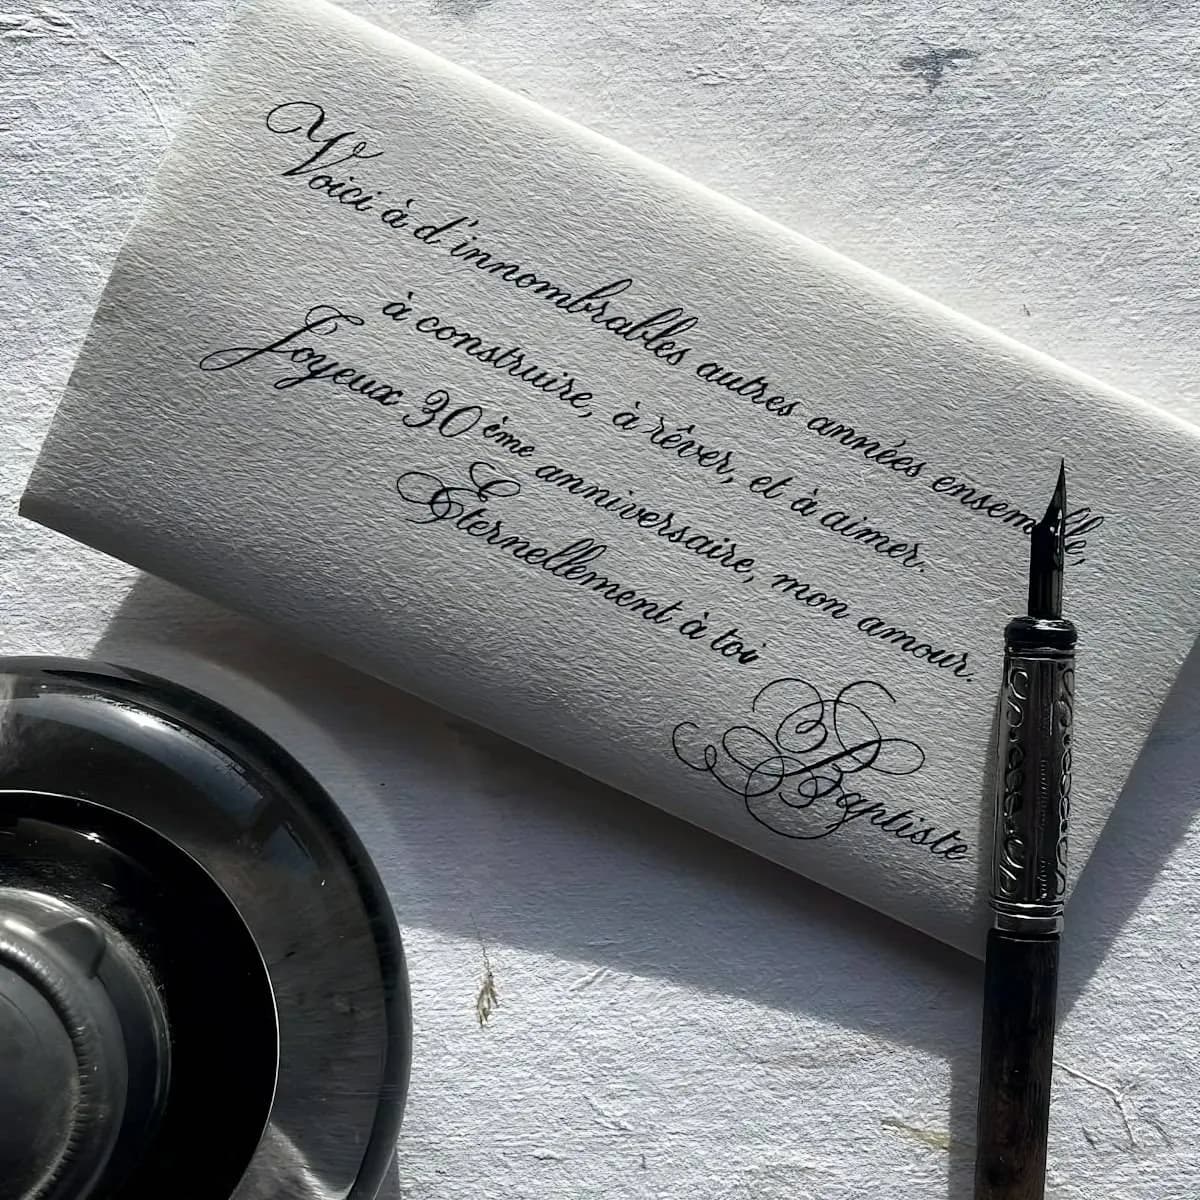 Voici à d'innombrables autres années ensemble,
à construire, à rêver, et à aimer.
Joyeux 30ème anniversaire, mon amour.
Éternellement à toi
Baptiste